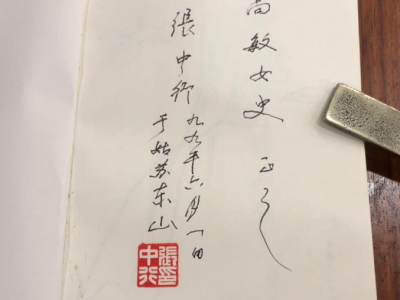 尚敏女史 正之
張中行
九九年六月一日
于姑苏东山
張中行